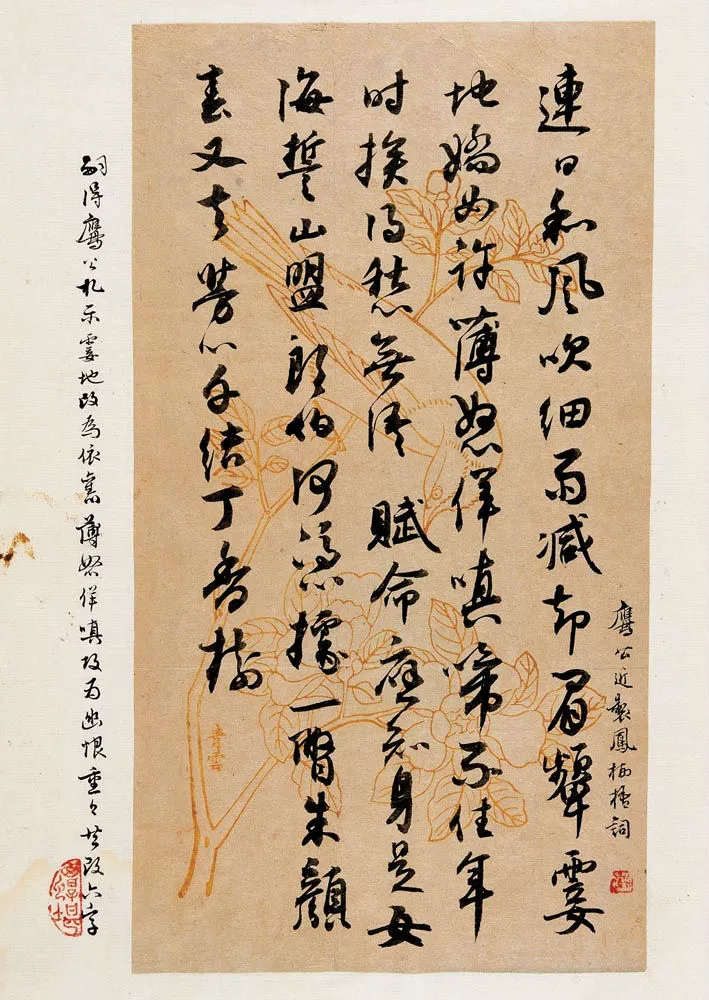 鷹公近製鳳栖梧詞
連日和風吹細雨減却眉顰霎
地嬌如許薄怒佯嗔啼不住年
時挨得愁無緒 賦命應知身是女
海誓山盟郎怕何憑據一瞥朱顏
春又去芳心千結丁香樹
嗣得鷹公札示霎地改為依舊薄怒佯嗔改為幽恨重々共改六字